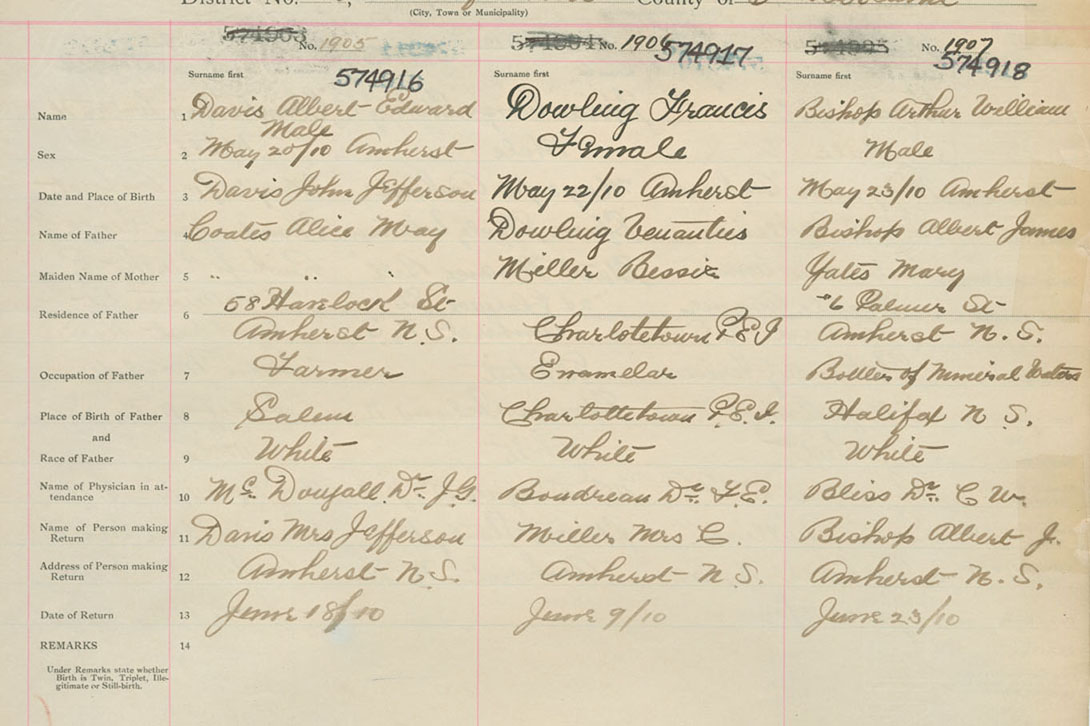 District No. County of
(City, Town or Municipality)
No. 1905 No. 1906 574917 No. 1907
574916 574918
Surname first Surname first Surname first
Name 1 Davis Albert Edward Dowling Francis Bishop Arthur William
Male
Sex 2 May 20/10 Amherst Female Male
Date and Place of Birth 3 Davis John Jefferson May 22/10 Amherst May 23/10 Amherst
Name of Father 4 Coates Alice May Dowling Bishop Albert James
Maiden Name of Mother 5 " " " Miller Bessie Yates Mary
58 Havelock St 6 Palmer St
Residence of Father 6 Amherst N.S. Charlotetown P.E.I Amherst N.S.
Occupation of Father 7 Farmer Enamelar Bottler of Mineral Waters
Place of Birth of Father 8 Salem Charlottetown P.E.I. Halifax N S.
and
Race of Father 9 White White White
Name of Physician in at-
tendance 10 Mc Dougall Dr J.G. Boudreau Dr F.E. Bliss Dr C W.
Name of Person making
Return 11 Davis Mrs Jefferson Miller Mrs C. Bishop Albert J.
Address of Person making
Return 12 Amherst N.S. Amherst N S. Amherst N.S.
Date of Return 13 June 18/10 June 9/10 June 23/10
REMARKS 14
Under Remarks state whether
Birth is Twin, Triplet, Ille-
gitimate or Still-birth.